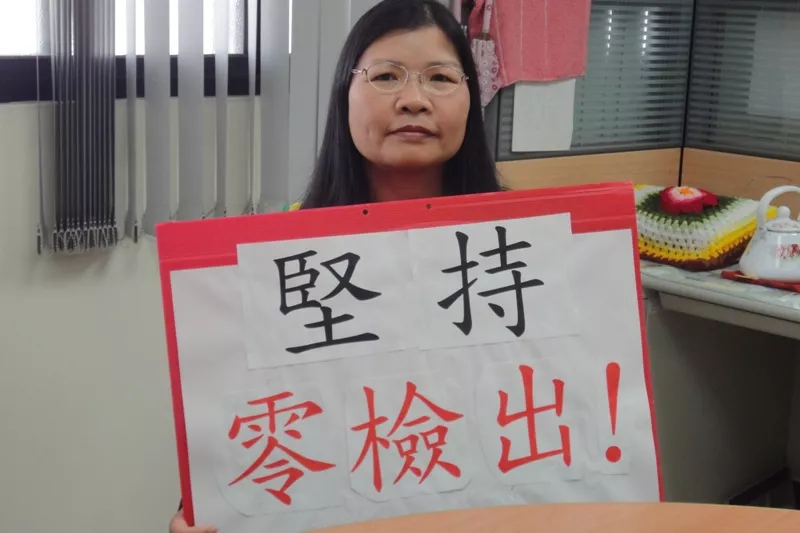 堅持
零檢出!